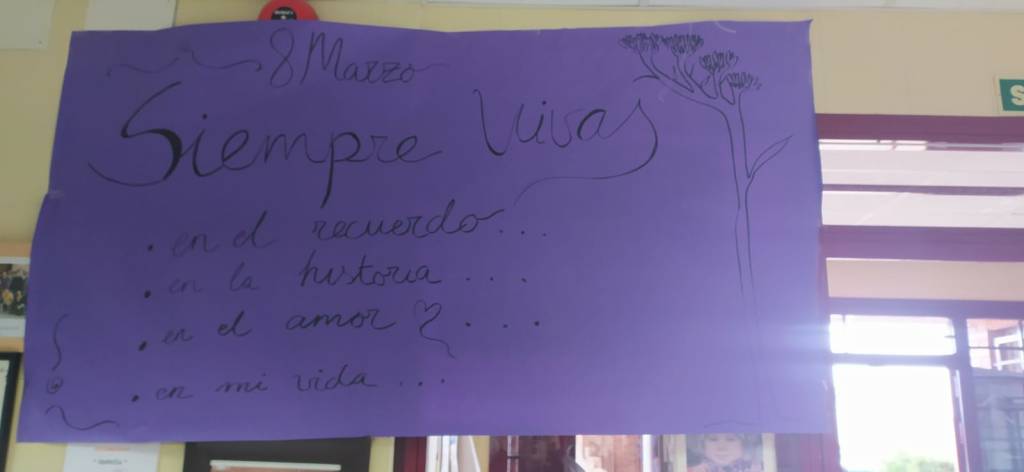 8 Marzo
Siempre Vivas
. en el recuerdo...
. en la historia...
. en el amor...
. en mi vida...
S